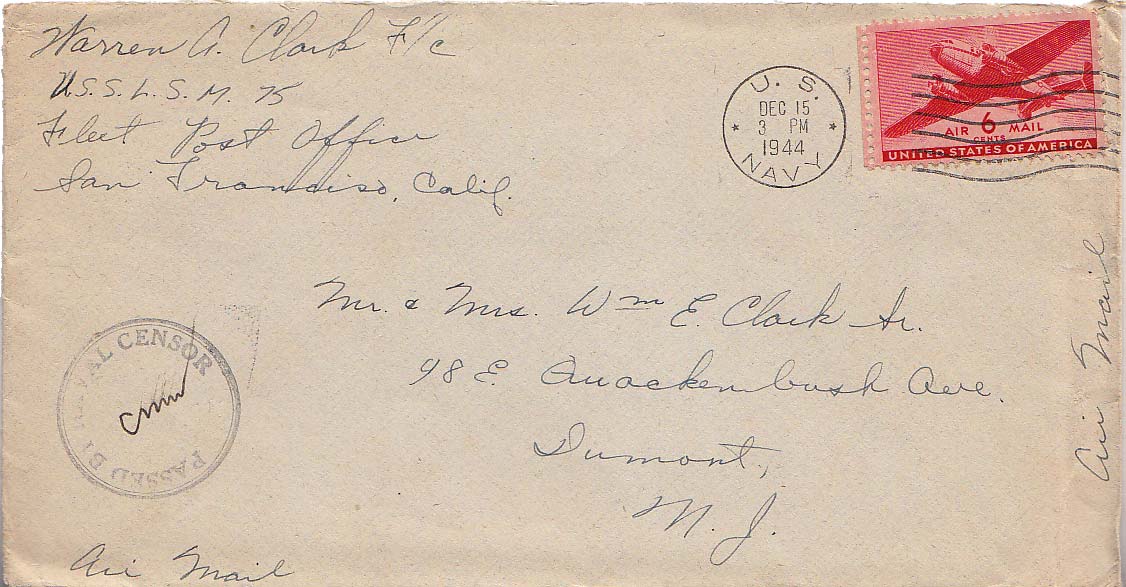 Warren A. Clark F/c
U.S.S. L.S.M. 75
Fleet Post Office
San Francisco, Calif.
U. S.
DEC 15
3 PM
1944
NAVY
AIR 6 MAIL
CENTS
UNITED STATES OF AMERICA
Mr. & Mrs. Wm E. Clark Sr.
98 E. Quackenbush Ave.
Dumont,
N. J.
PASSED BY NAVAL CENSOR
Air Mail
Air Mail